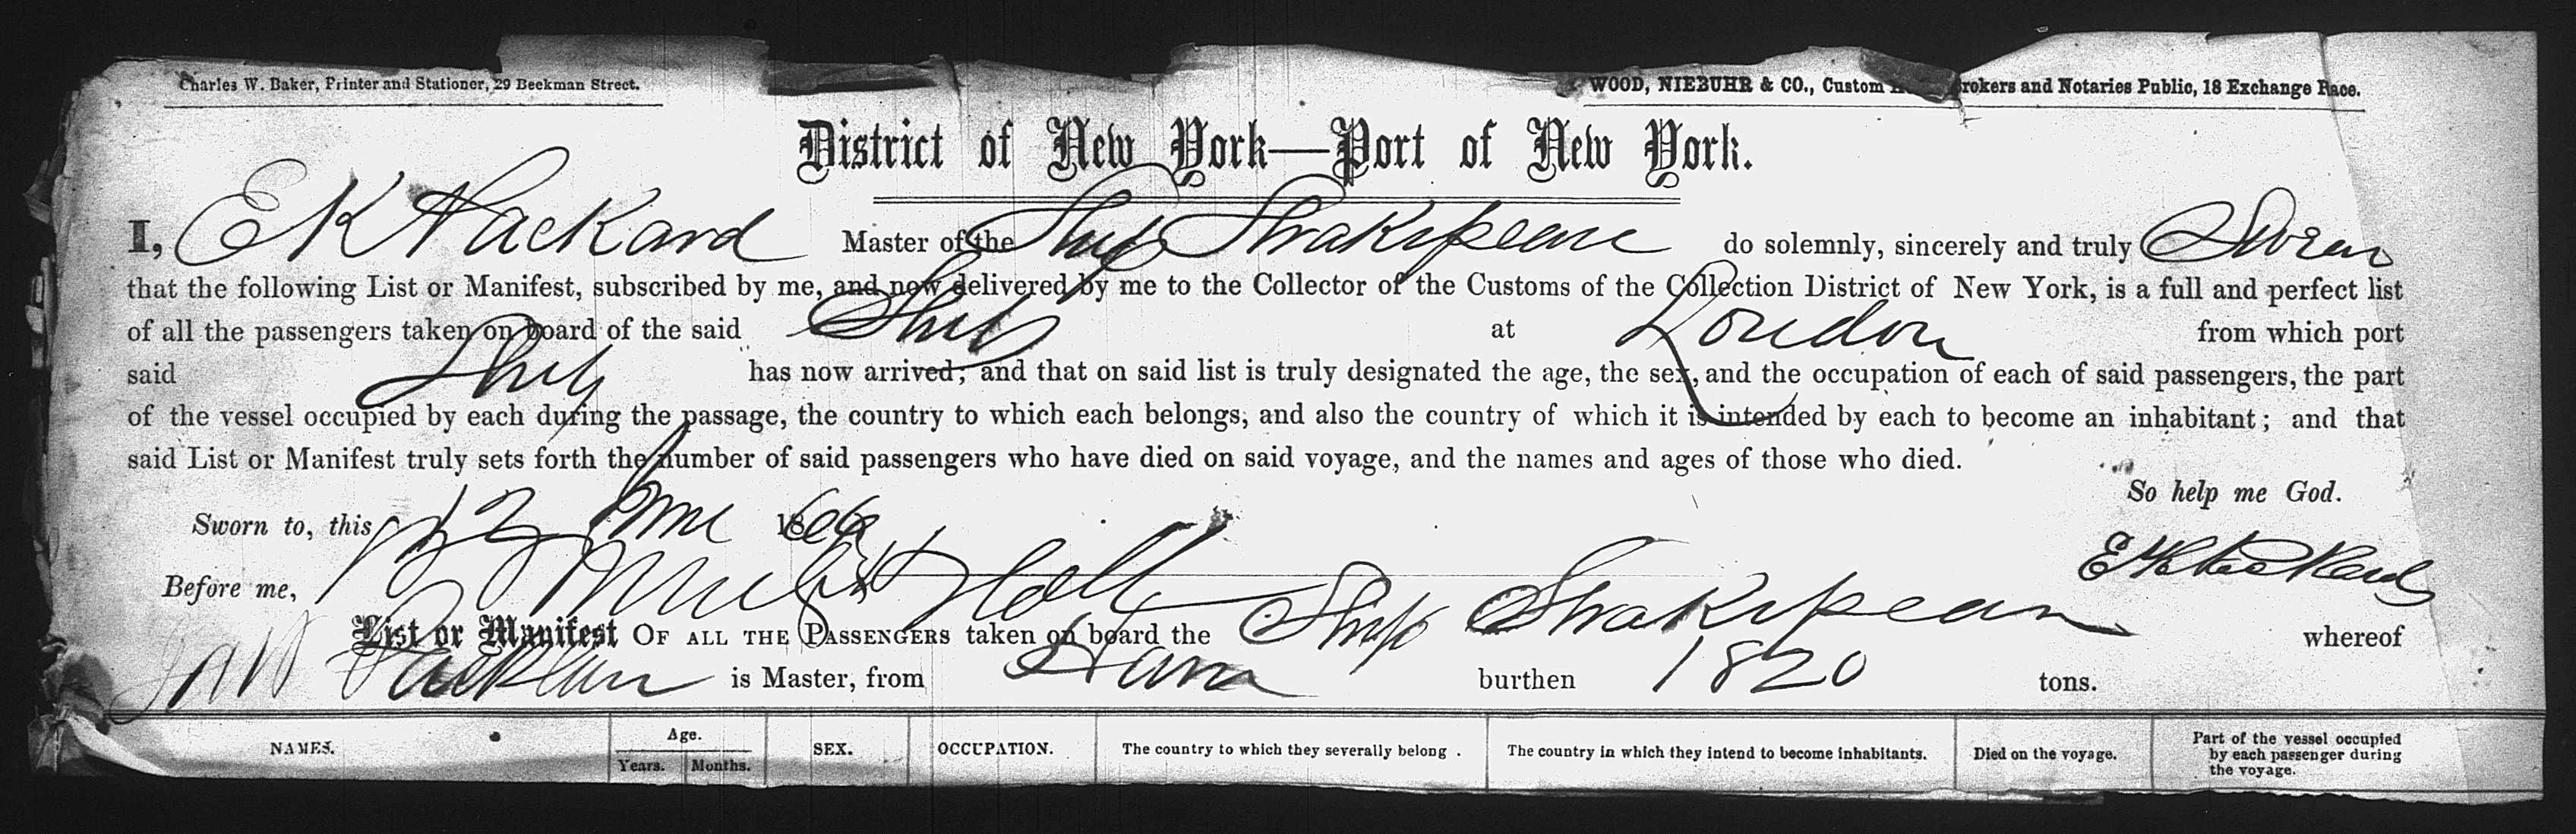 Charles W. Baker, Printer and Stationer, 29 Beekman Street.
WOOD, NIEBUHR & CO., Custom Brokers and Notaries Public, 18 Exchange Place.
District of New York—Port of New York.
I, E K Packard Master of the Ship Shakespeare do solemnly, sincerely and truly Swear
that the following List or Manifest, subscribed by me, and now delivered by me to the Collector of the Customs of the Collection District of New York, is a full and perfect list
of all the passengers taken on board of the said Ship at London from which port
said Ship has now arrived; and that on said list is truly designated the age, the sex, and the occupation of each of said passengers, the part
of the vessel occupied by each during the passage, the country to which each belongs, and also the country of which it is intended by each to become an inhabitant; and that
said List or Manifest truly sets forth the number of said passengers who have died on said voyage, and the names and ages of those who died.
So help me God.
Sworn to, this 12 June 1866
E K Packard
Before me,
List or Manifest OF ALL THE PASSENGERS taken on board the Ship Shakespeare whereof
is Master, from burthen 1820 tons.
NAMES. Age. Years. Months. SEX. OCCUPATION. The country to which they severally belong. The country in which they intend to become inhabitants. Died on the voyage. Part of the vessel occupied by each passenger during the voyage.